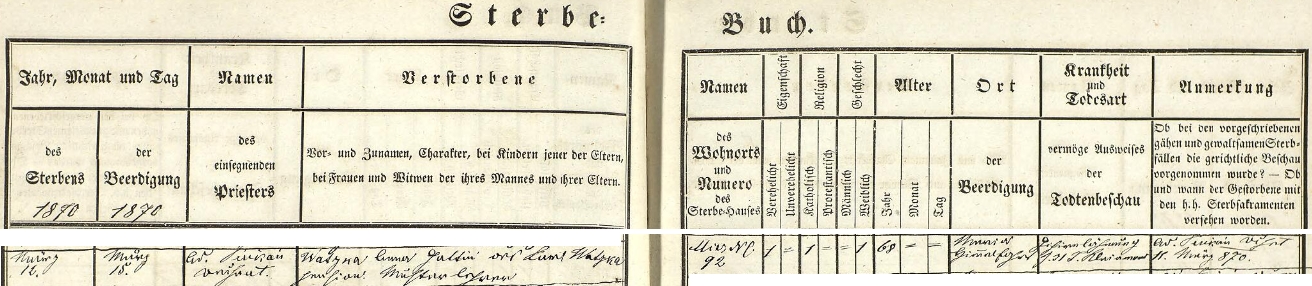 Sterbe-
Buch.
Jahr, Monat und Tag
Namen
Verstorbene
des
Sterbens
1870
der
Beerdigung
1870
des
einsegnenden
Priesters
Vor- und Zunamen, Charakter, bei Kindern jener der Eltern,
bei Frauen und Witwen der ihres Mannes und ihrer Eltern.
Namen
Eigenschaft
Religion
Geschlecht
Alter
Ort
Krankheit
und
Todesart
Anmerkung
des
Wohnorts
und
Numero
des
Sterbe-Hauses
Verehelichte
Unverehelichte
Katholisch
Protestantisch
Männlich
Weiblich
Jahr
Monat
Tag
der
Beerdigung
vermöge Ausweises
der
Todtenbeschau
Ob bei den vorgeschriebenen
gähen und gewaltsamen Sterb-
fällen die gerichtliche Beschau
vorgenommen wurde? — Ob
und wann der Gestorbene mit
den h.h. Sterbsakramenten
versehen worden.
März
März
Watzka Anna Gattin des Karl Watzka
pension. Musterlehrer
92
1 = 1 = = 1 68 = =
Maria
11. März 870.